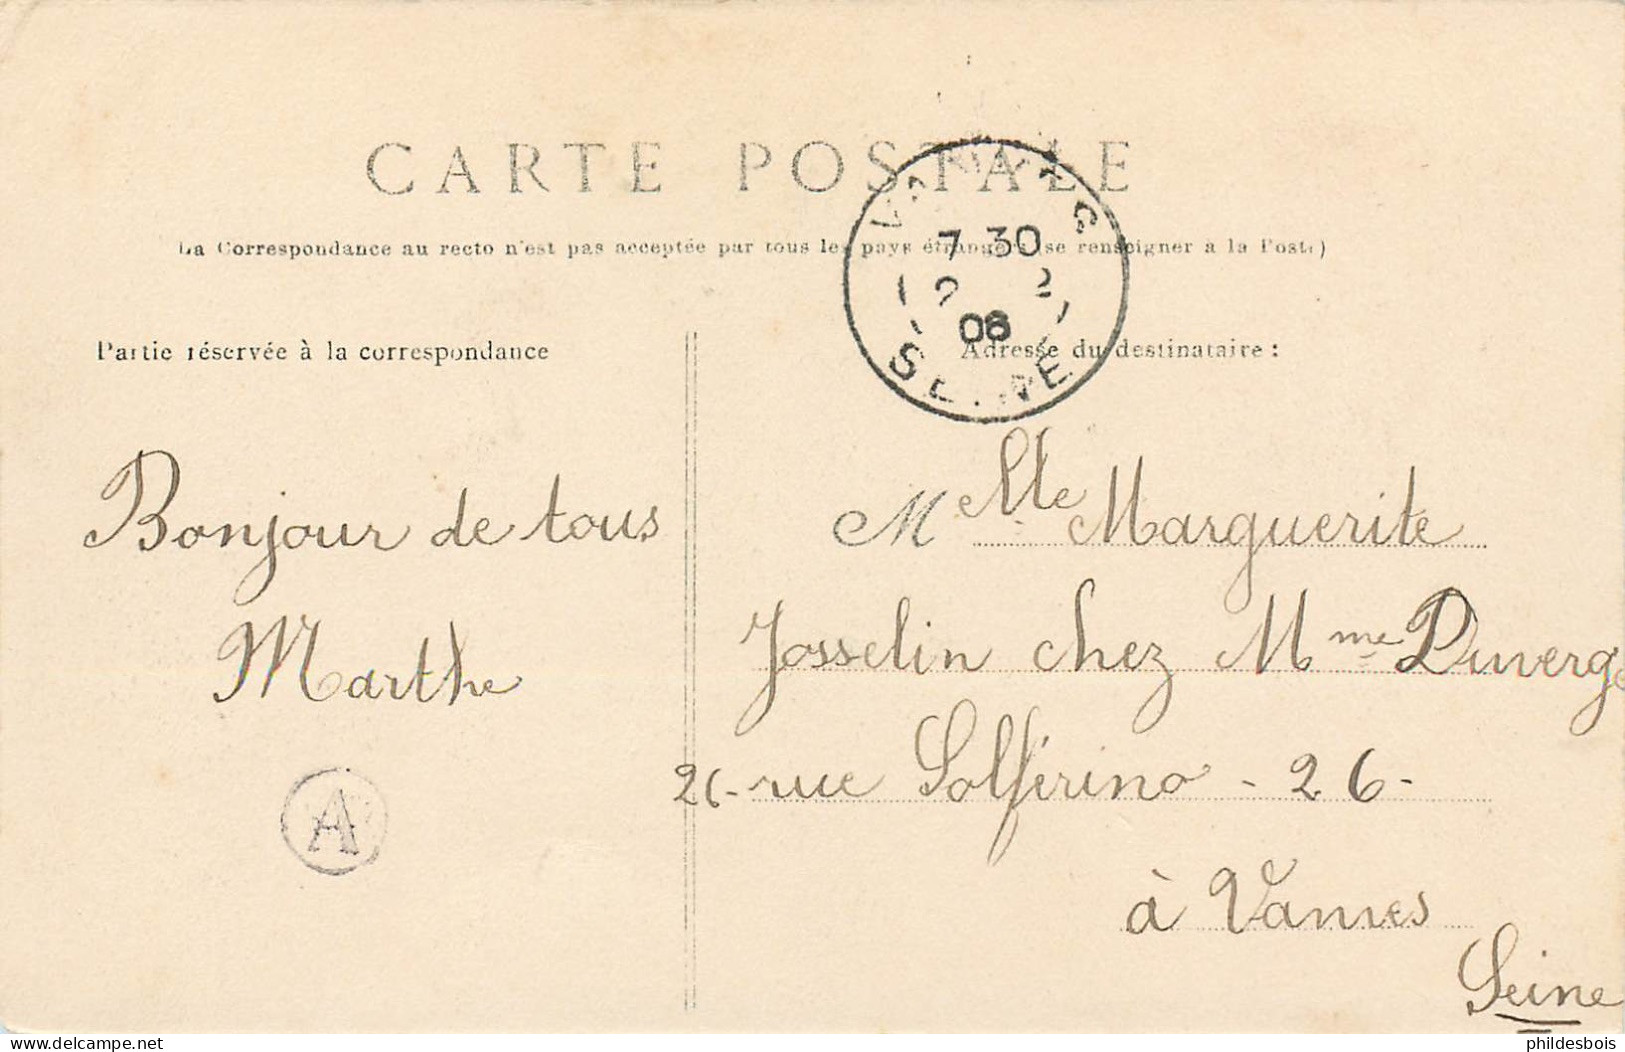 CARTE POSTALE
La Correspondance au recto n'est pas acceptée par tous les pays étrangers (se renseigner a la Poste)
7 30
06
SEINE
Partie réservée à la correspondance
Adresse du destinataire :
Bonjour de tous
Marthe
A
Melle Marguerite
Josselin chez Mme Duverg
26 - rue Solférino - 26 -
à Vanves
Seine
phildesbois